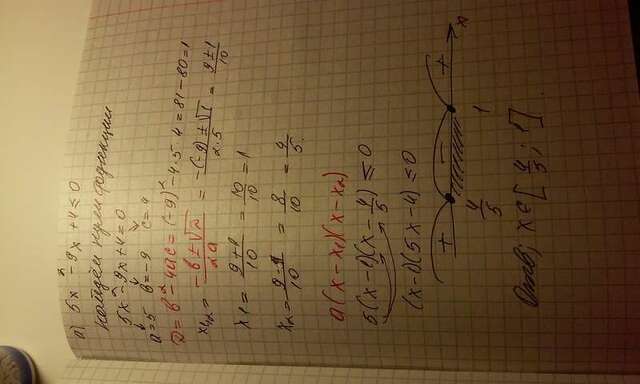 а) 5x² - 9x + 4 ≤ 0
Найдём нули функции
5x² - 9x + 4 = 0
a = 5 b = -9 c = 4
D = b² - 4ac = (-9)² - 4·5·4 = 81 - 80 = 1
x₁,₂ = (-b ± √D)/2a = (-(-9) ± √1)/2·5 = (9 ± 1)/10
x₁ = (9 + 1)/10 = 10/10 = 1
x₂ = (9 - 1)/10 = 8/10 = 4/5.
a(x - x₁)(x - x₂)
5(x - 1)(x - 4/5) ≤ 0
(x - 1)(5x - 4) ≤ 0
+ - + x
4/5 1
Отв; x ∈ [4/5; 1]